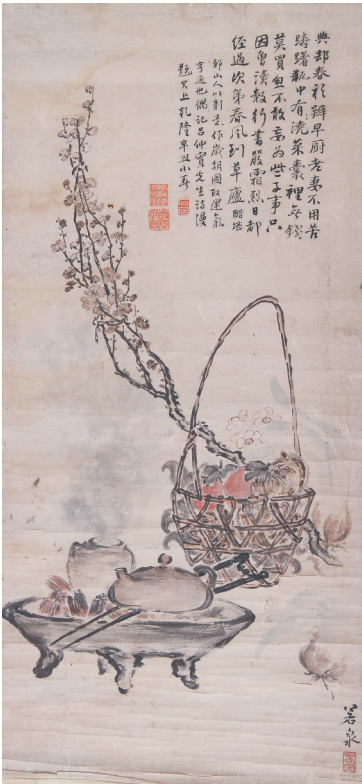 典却春衫辦早厨老妻不用苦
躊躇瓶中有澆菜囊裡無錢
莫買魚不敢妄為些子事只
因曾讀数行書嚴霜烈日都
經過次第春風到草廬 醋堪
山人以新意作歲朝圖取運氣
亨通也偶記呂仲實先生詩漫
題其上乾隆辛丑小春
若泉